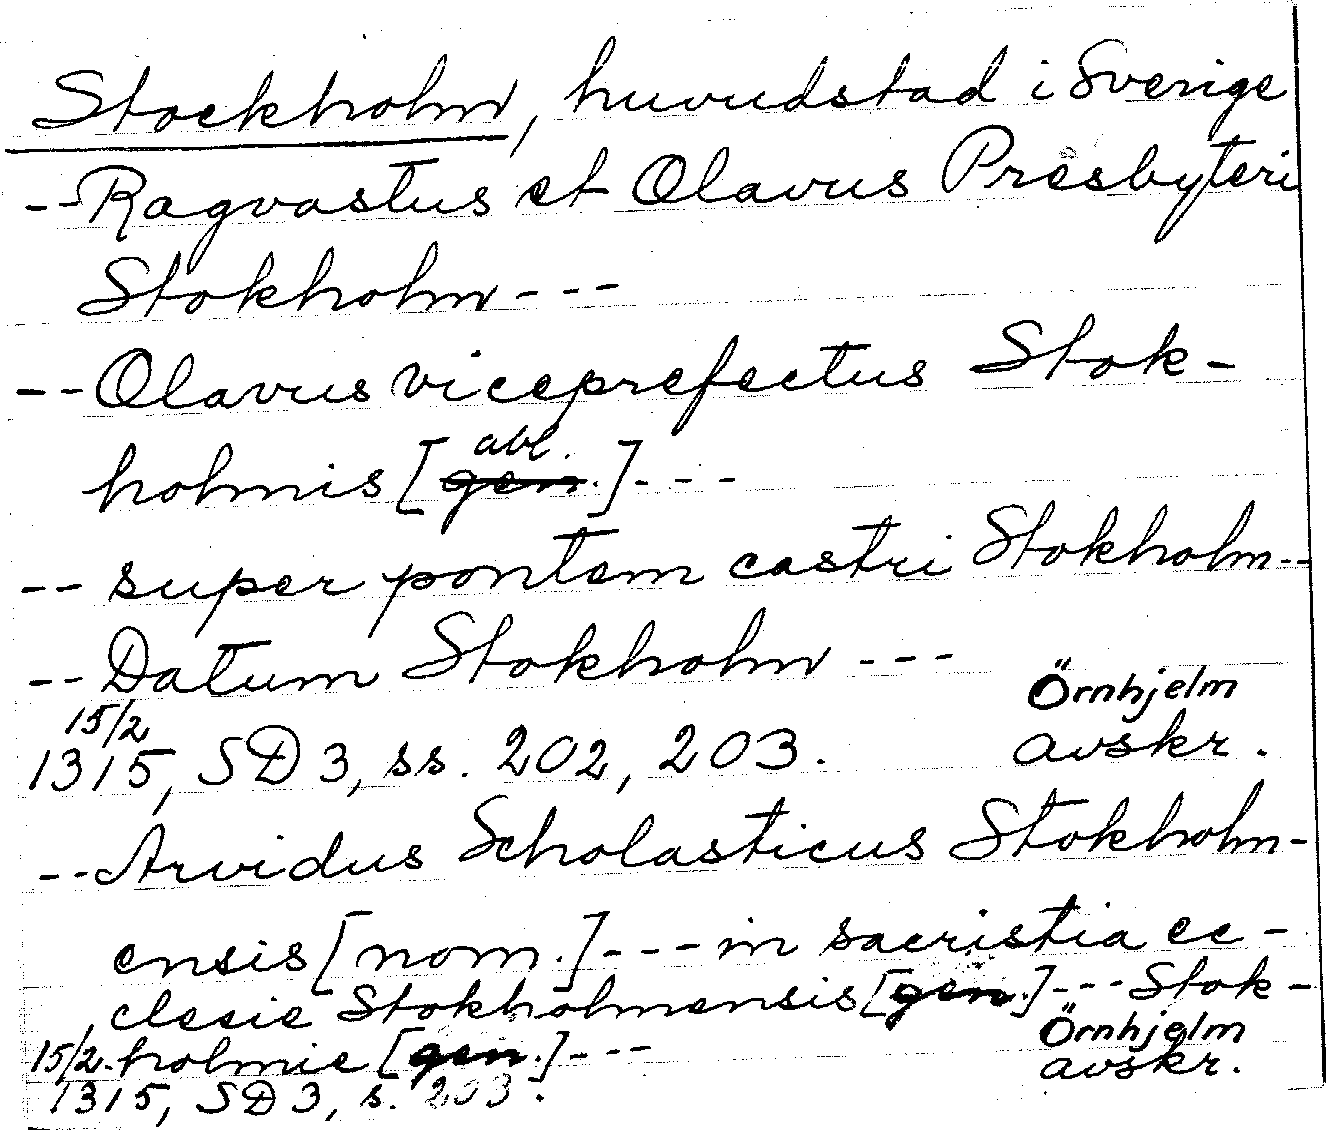 Stockholm, huvudstad i Sverige
-- Ragvastus et Olavus Presbyteri
Stokholm ---
-- Olavus viceprefectus Stok-
holmis [gen. abl.] ---
-- super pontem castri Stokholm--
-- Datum Stokholm ---
15/2 Örnhjelm
1315, SD 3, ss. 202, 203. avskr.
-- Arvidus Scholasticus Stokholm-
ensis [nom.] --- in sacristia ec-
clesie Stokholmensis [gen.] --- Stok-
15/2. holmie [gen.] --- Örnhjelm
1315, SD 3, s. 203. avskr.